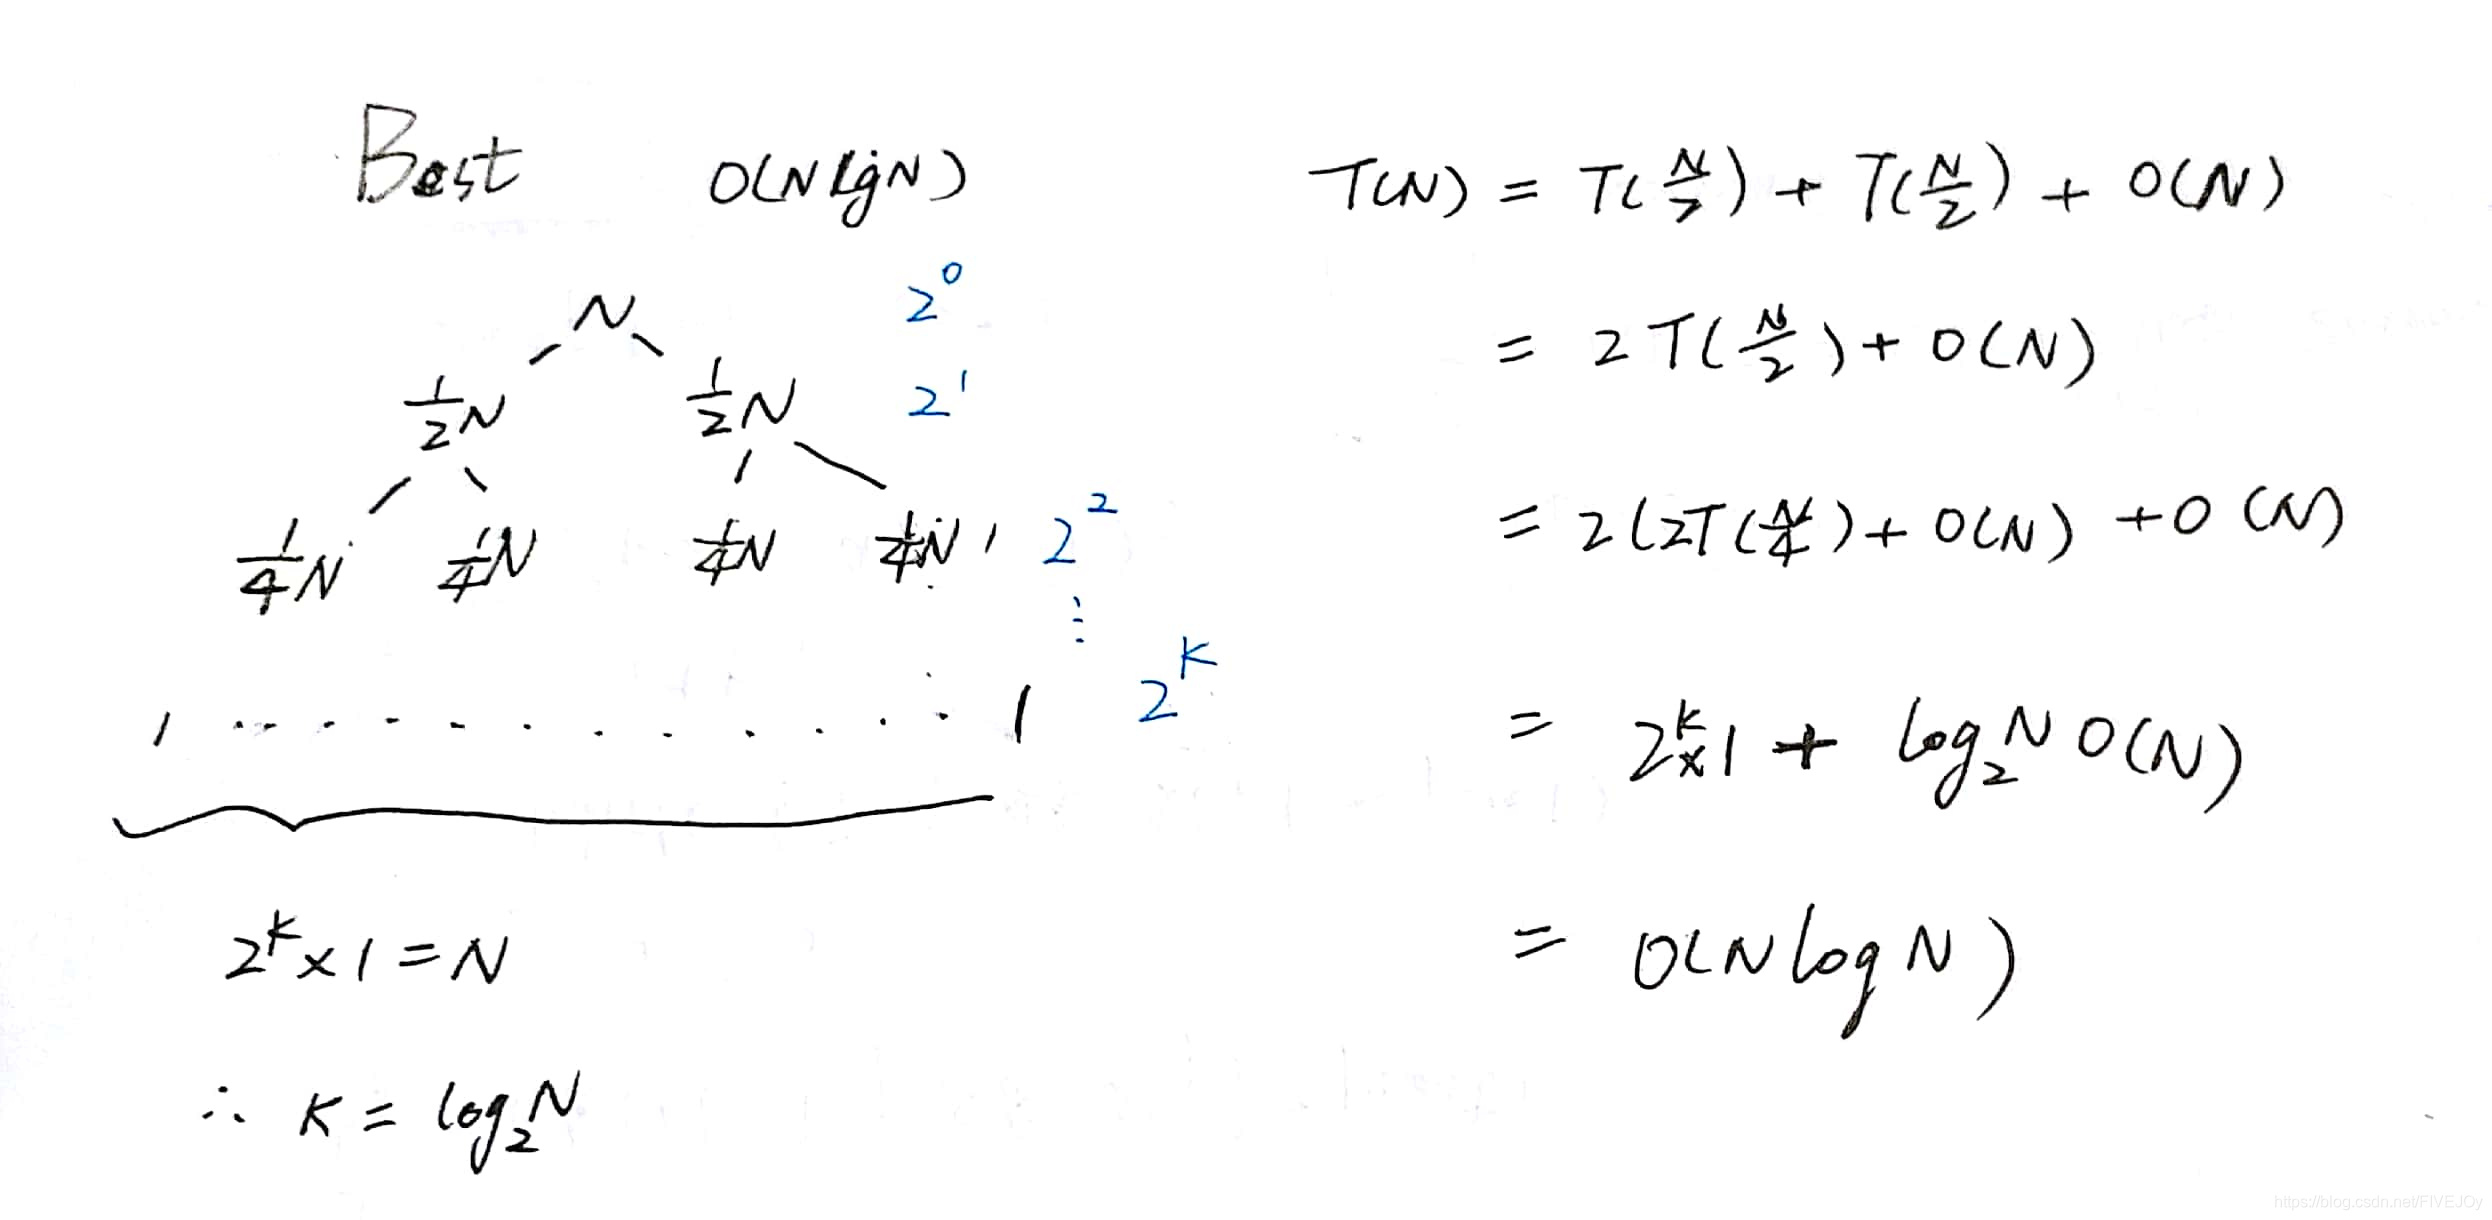 Best O(N lgN)
N 2^0
1/2 N 1/2 N 2^1
1/4 N 1/4 N 1/4 N 1/4 N 2^2
⋮
1 ............. 1 2^K
2^K × 1 = N
∴ K = log₂N
T(N) = T(N/2) + T(N/2) + O(N)
= 2T(N/2) + O(N)
= 2(2T(N/4) + O(N) + O(N)
= 2^K × 1 + log₂N O(N)
= O(N log N)
https://blog.csdn.net/FIVEJOy